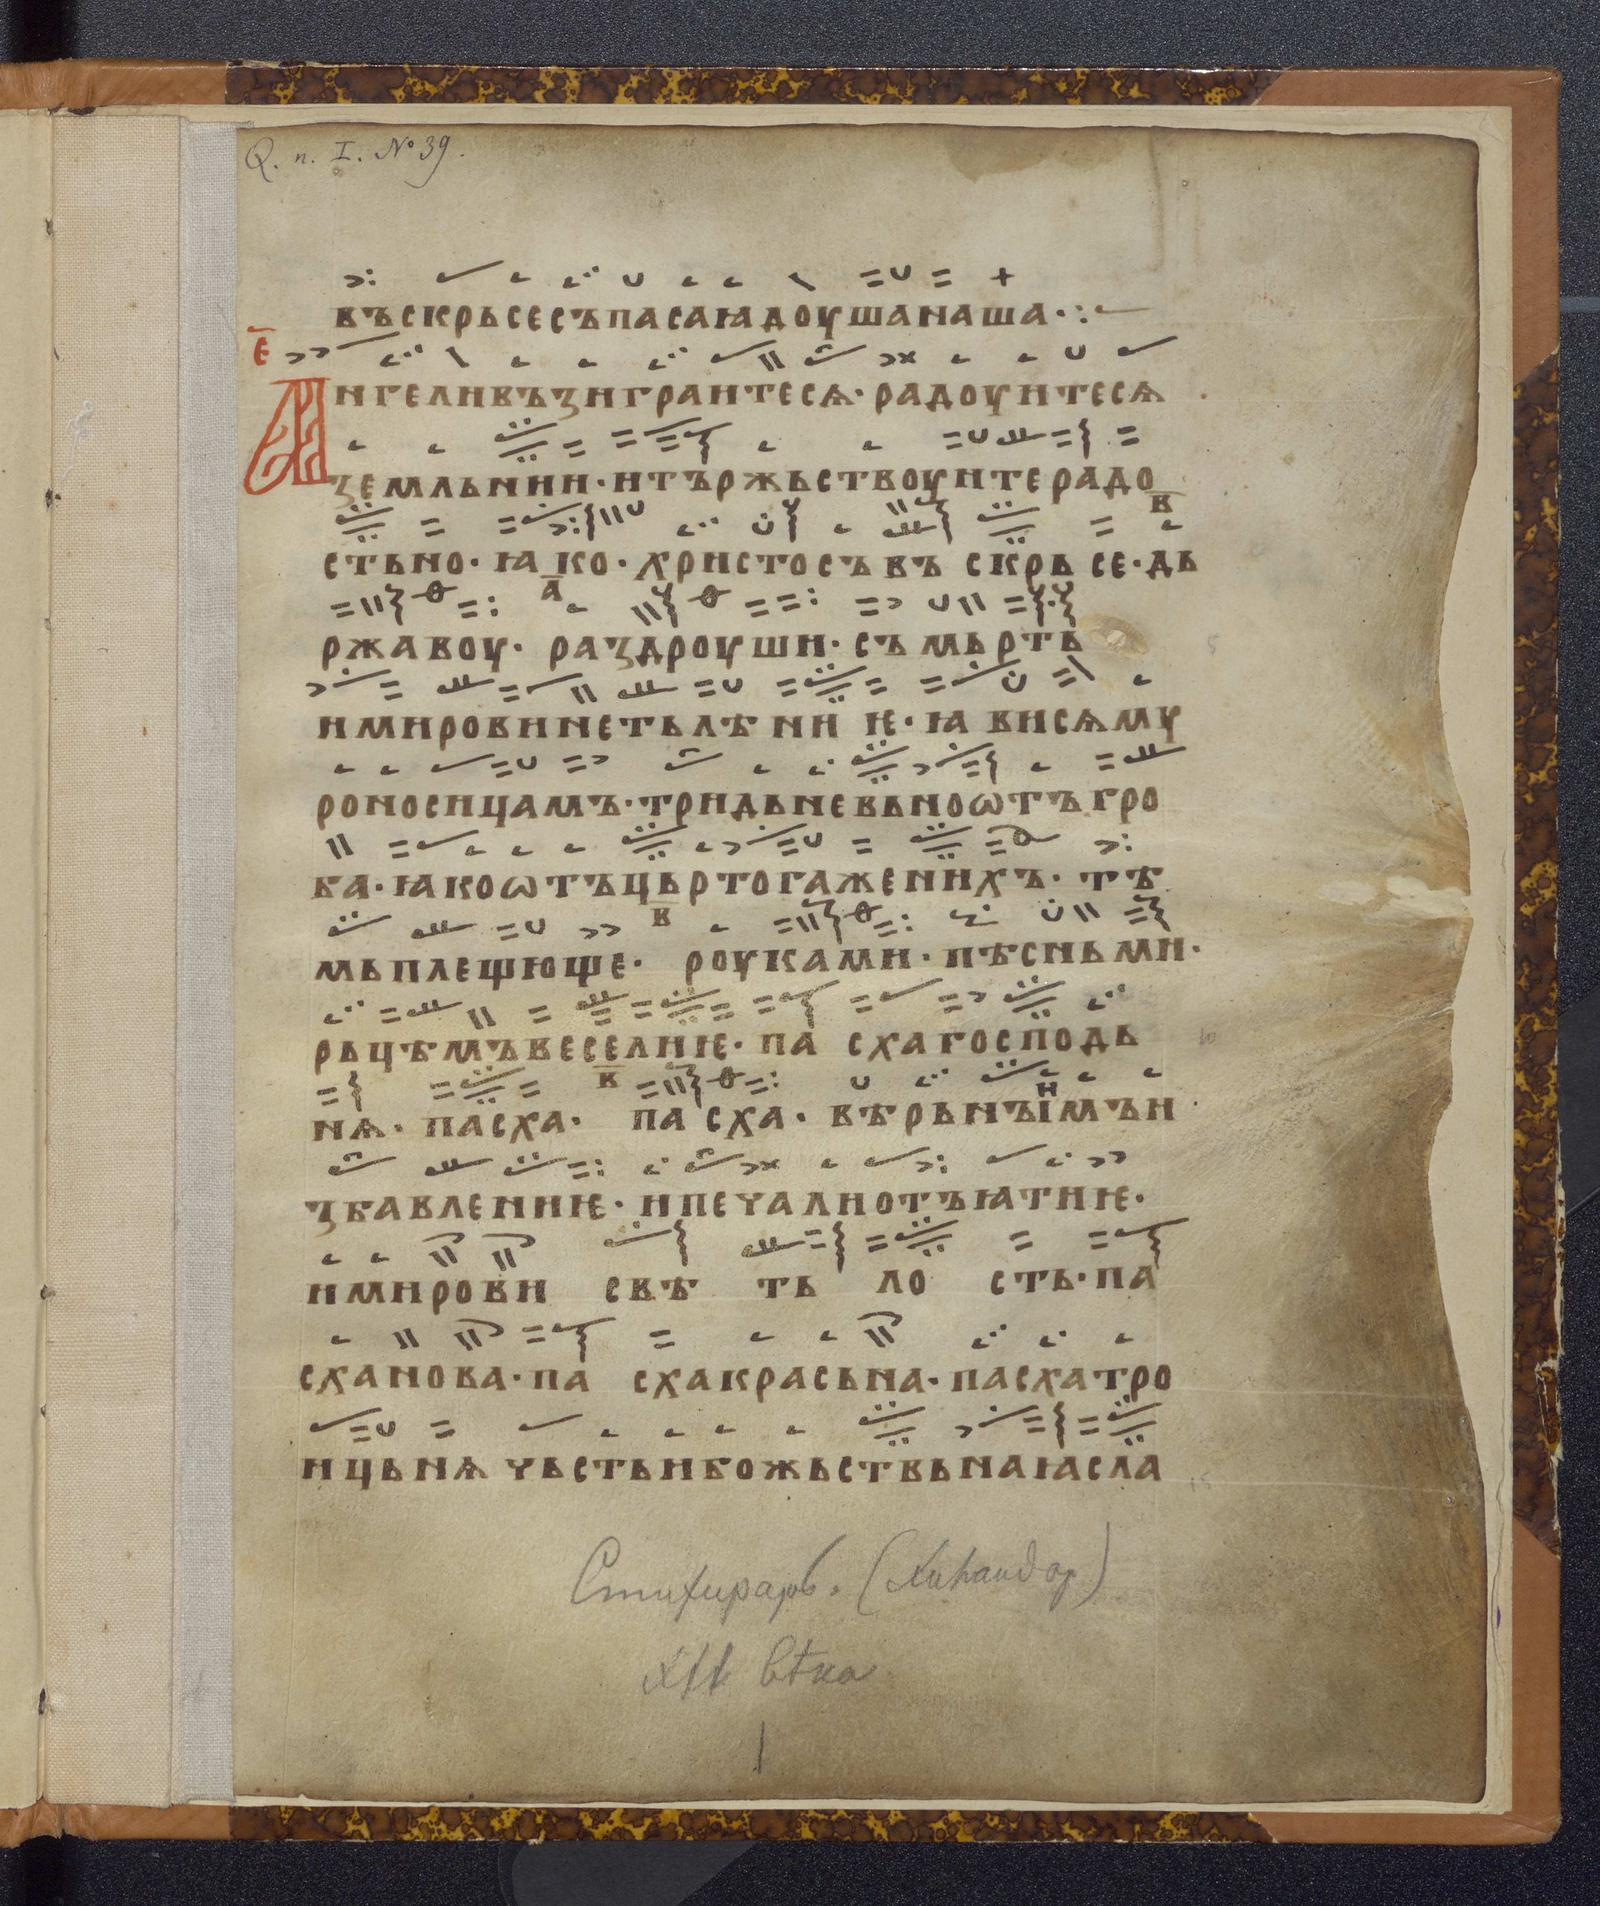 Q. п. I. № 39.
въскрьсесъпасаꙗдоушанаша·:
е҃
Ангеливъзиграитесѧ·радоуитесѧ
земльнии·итържьствоуитерадо
в
стьно·ꙗко·христосъвъ скрь се·дь
а
ржавоу· раздроуши·съмьрть
имировинетьлѣни ѥ·ꙗ висѧму
роносицамъ·тридьневьноѡтъгро
ба·ꙗкоѡтъцьртогаженихъ·тѣ
в
мьплещюще· роуками·пѣсньми·
рьцѣмъвеселиѥ·па схагосподь
в
нѧ·пасха· па сха·вѣрьнꙑимъи
збавлениѥ·ипечалиотъꙗтиѥ·
имирови свѣ ть ло сть·па
сханова·па схакрасьна·пасхатро
ицьнѧ чьстьнбожьствьнаꙗсла
5
10
15
Стихирарь. (Хиландар)
XII вѣка
1